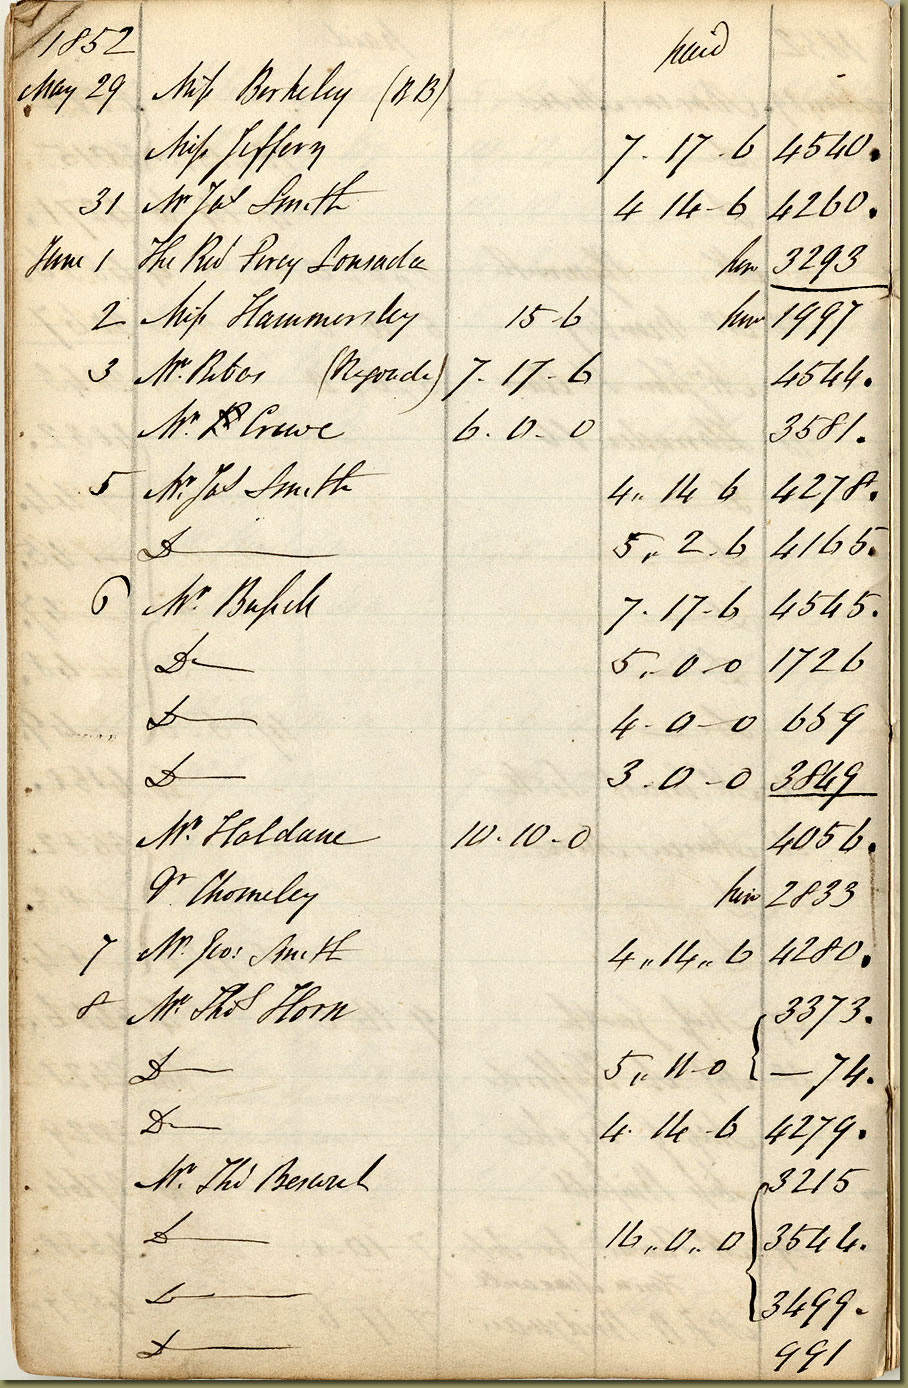 1852 paid
May 29 Miss Berkeley (BB)
Miss Jeffery 7-17-6 4540.
31 Mr Jas Smith 4 14-6 4260.
June 1 The Revd Percy hire 3293
2 Miss Hammersley 15-6 hire 1997
3 Mr. Ribas (Regondi) 7-17-6 4544.
Mr. Crewe 6-0-0 3581.
5 Mr. Jas Smith 4,, 14 6 4278.
D 5,, 2-6 4165.
6 Mr. Bussell 7-17-6 4545.
D 5,, 0-0 1726
D 4-0-0 659
D 3-0-0 3849
Mr. Haldane 10-10-0 4056.
Dr Chomeley hire 2833
7 Mr. Jos: Smith 4,, 14,, 6 4280.
8 Mr. Thos Horn 3373.
D 5,, 11-0 — 74.
D 4 14-6 4279.
Mr. Thos 3215
D 16,, 0,, 0 3544.
D 3499.
D 991